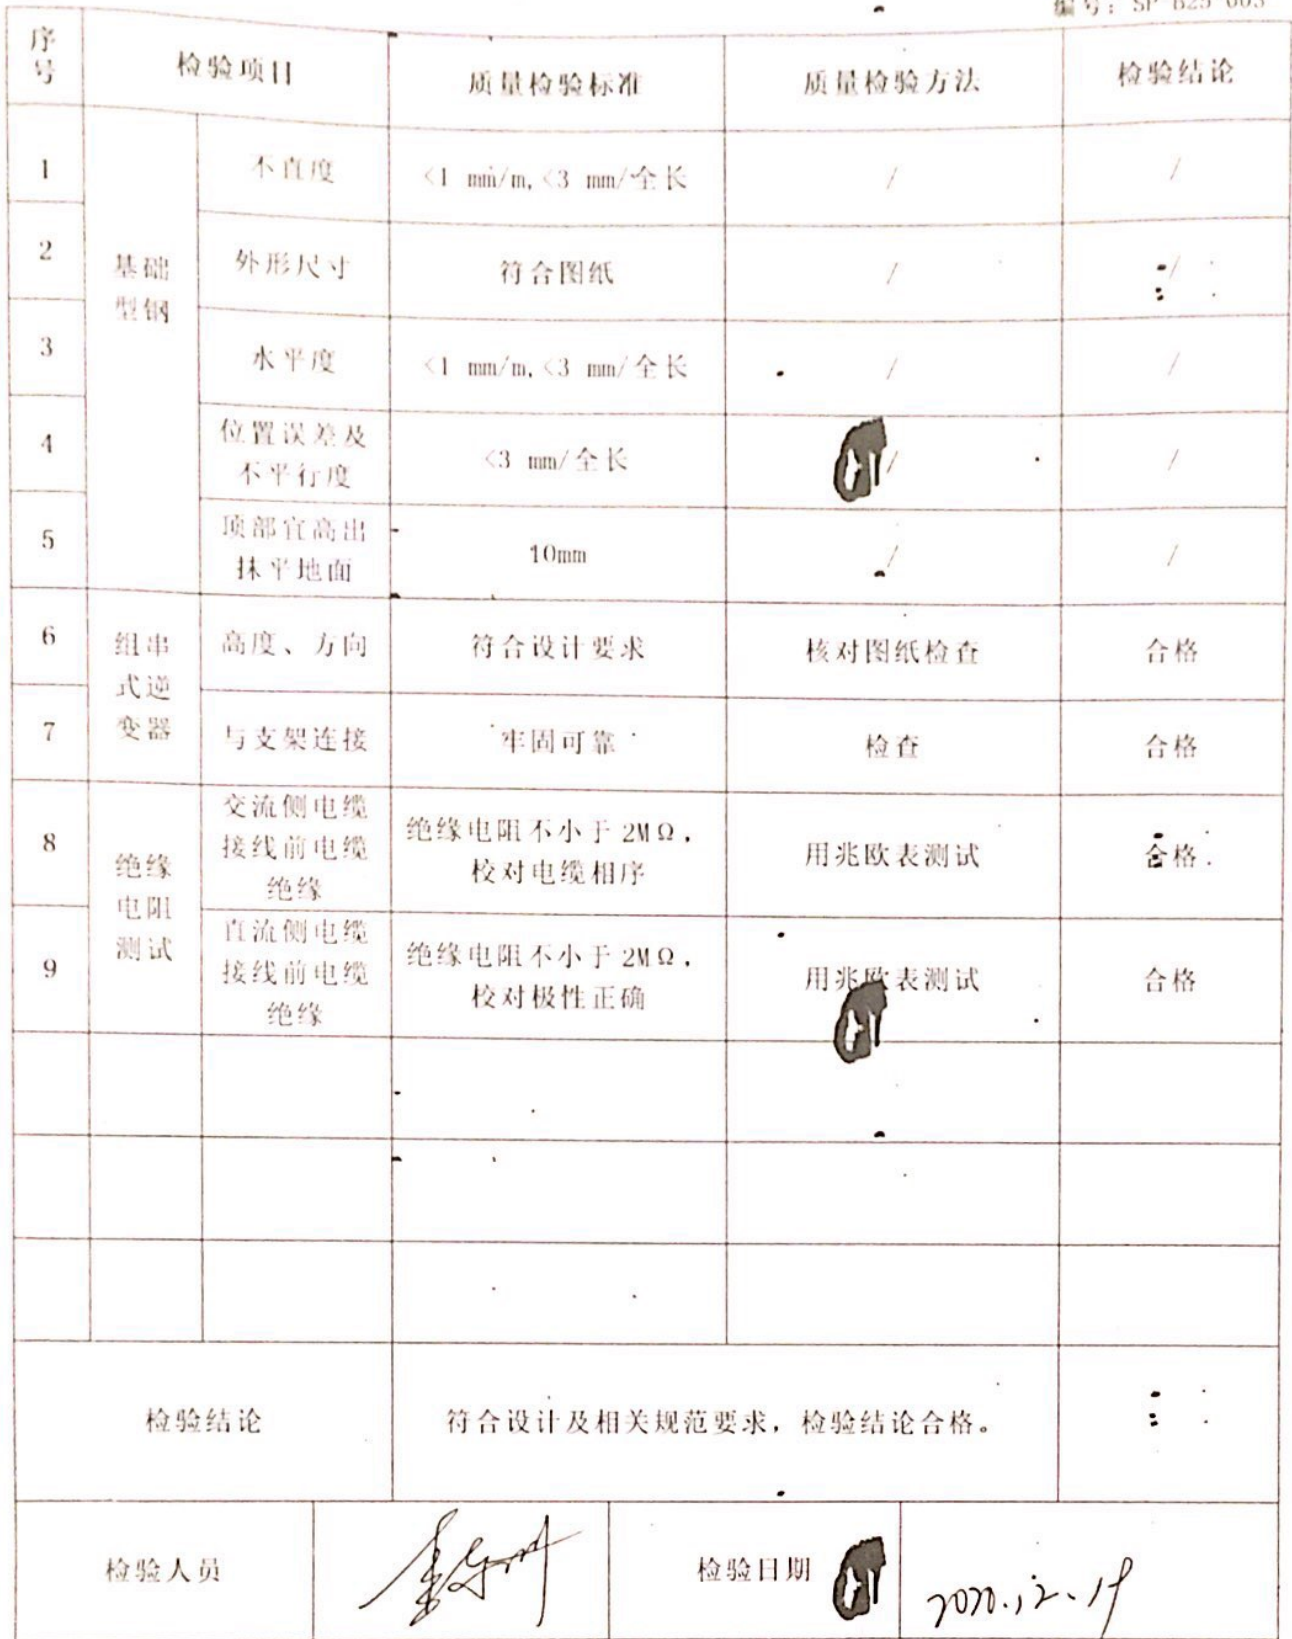 编号: SP-B25-003
序号 检验项目 质量检验标准 质量检验方法 检验结论
1 基础型钢 不直度 <1 mm/m,<3 mm/全长 / /
2 外形尺寸 符合图纸 / /
3 水平度 <1 mm/m,<3 mm/全长 / /
4 位置误差及不平行度 <3 mm/全长 / /
5 顶部宜高出抹平地面 10mm / /
6 组串式逆变器 高度、方向 符合设计要求 核对图纸检查 合格
7 与支架连接 牢固可靠 检查 合格
8 绝缘电阻测试 交流侧电缆接线前电缆绝缘 绝缘电阻不小于 2MΩ,校对电缆相序 用兆欧表测试 合格
9 直流侧电缆接线前电缆绝缘 绝缘电阻不小于 2MΩ,校对极性正确 用兆欧表测试 合格
检验结论 符合设计及相关规范要求，检验结论合格。
检验人员 检验日期 2020.12.19